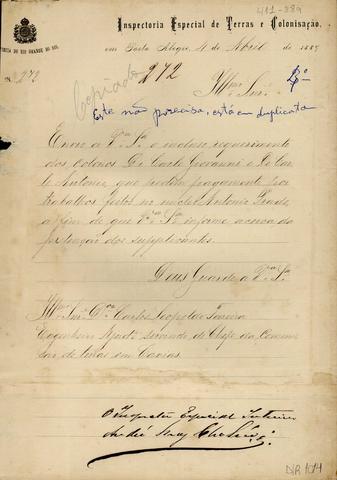 411-889
Inspectoria Especial de Terras e Colonisação,
em Porto Alegre, 4 de Abril de 1889
N. 272
Copiado
272
Illmo. Snr.
Este não precisa, está em duplicata
Envio a Vª. Sª. o incluso requerimento
dos colonos De Carle Giovanni e De Car
le Antonio, que pedem pagamento por
trabalhos feitos no nucleo Antonio Prado
a fim de que Vª. Sª. informe acerca da
pretenção dos supplicantes.
Deus Guarde a Vª. Sª.
Illmo. Snr. Dr. Carlos Leopoldo
Engenheiro Ajude. servindo de Chefe da Commis
são de terras em Caxias.
O Inspector Especial Interino
DIR 1014